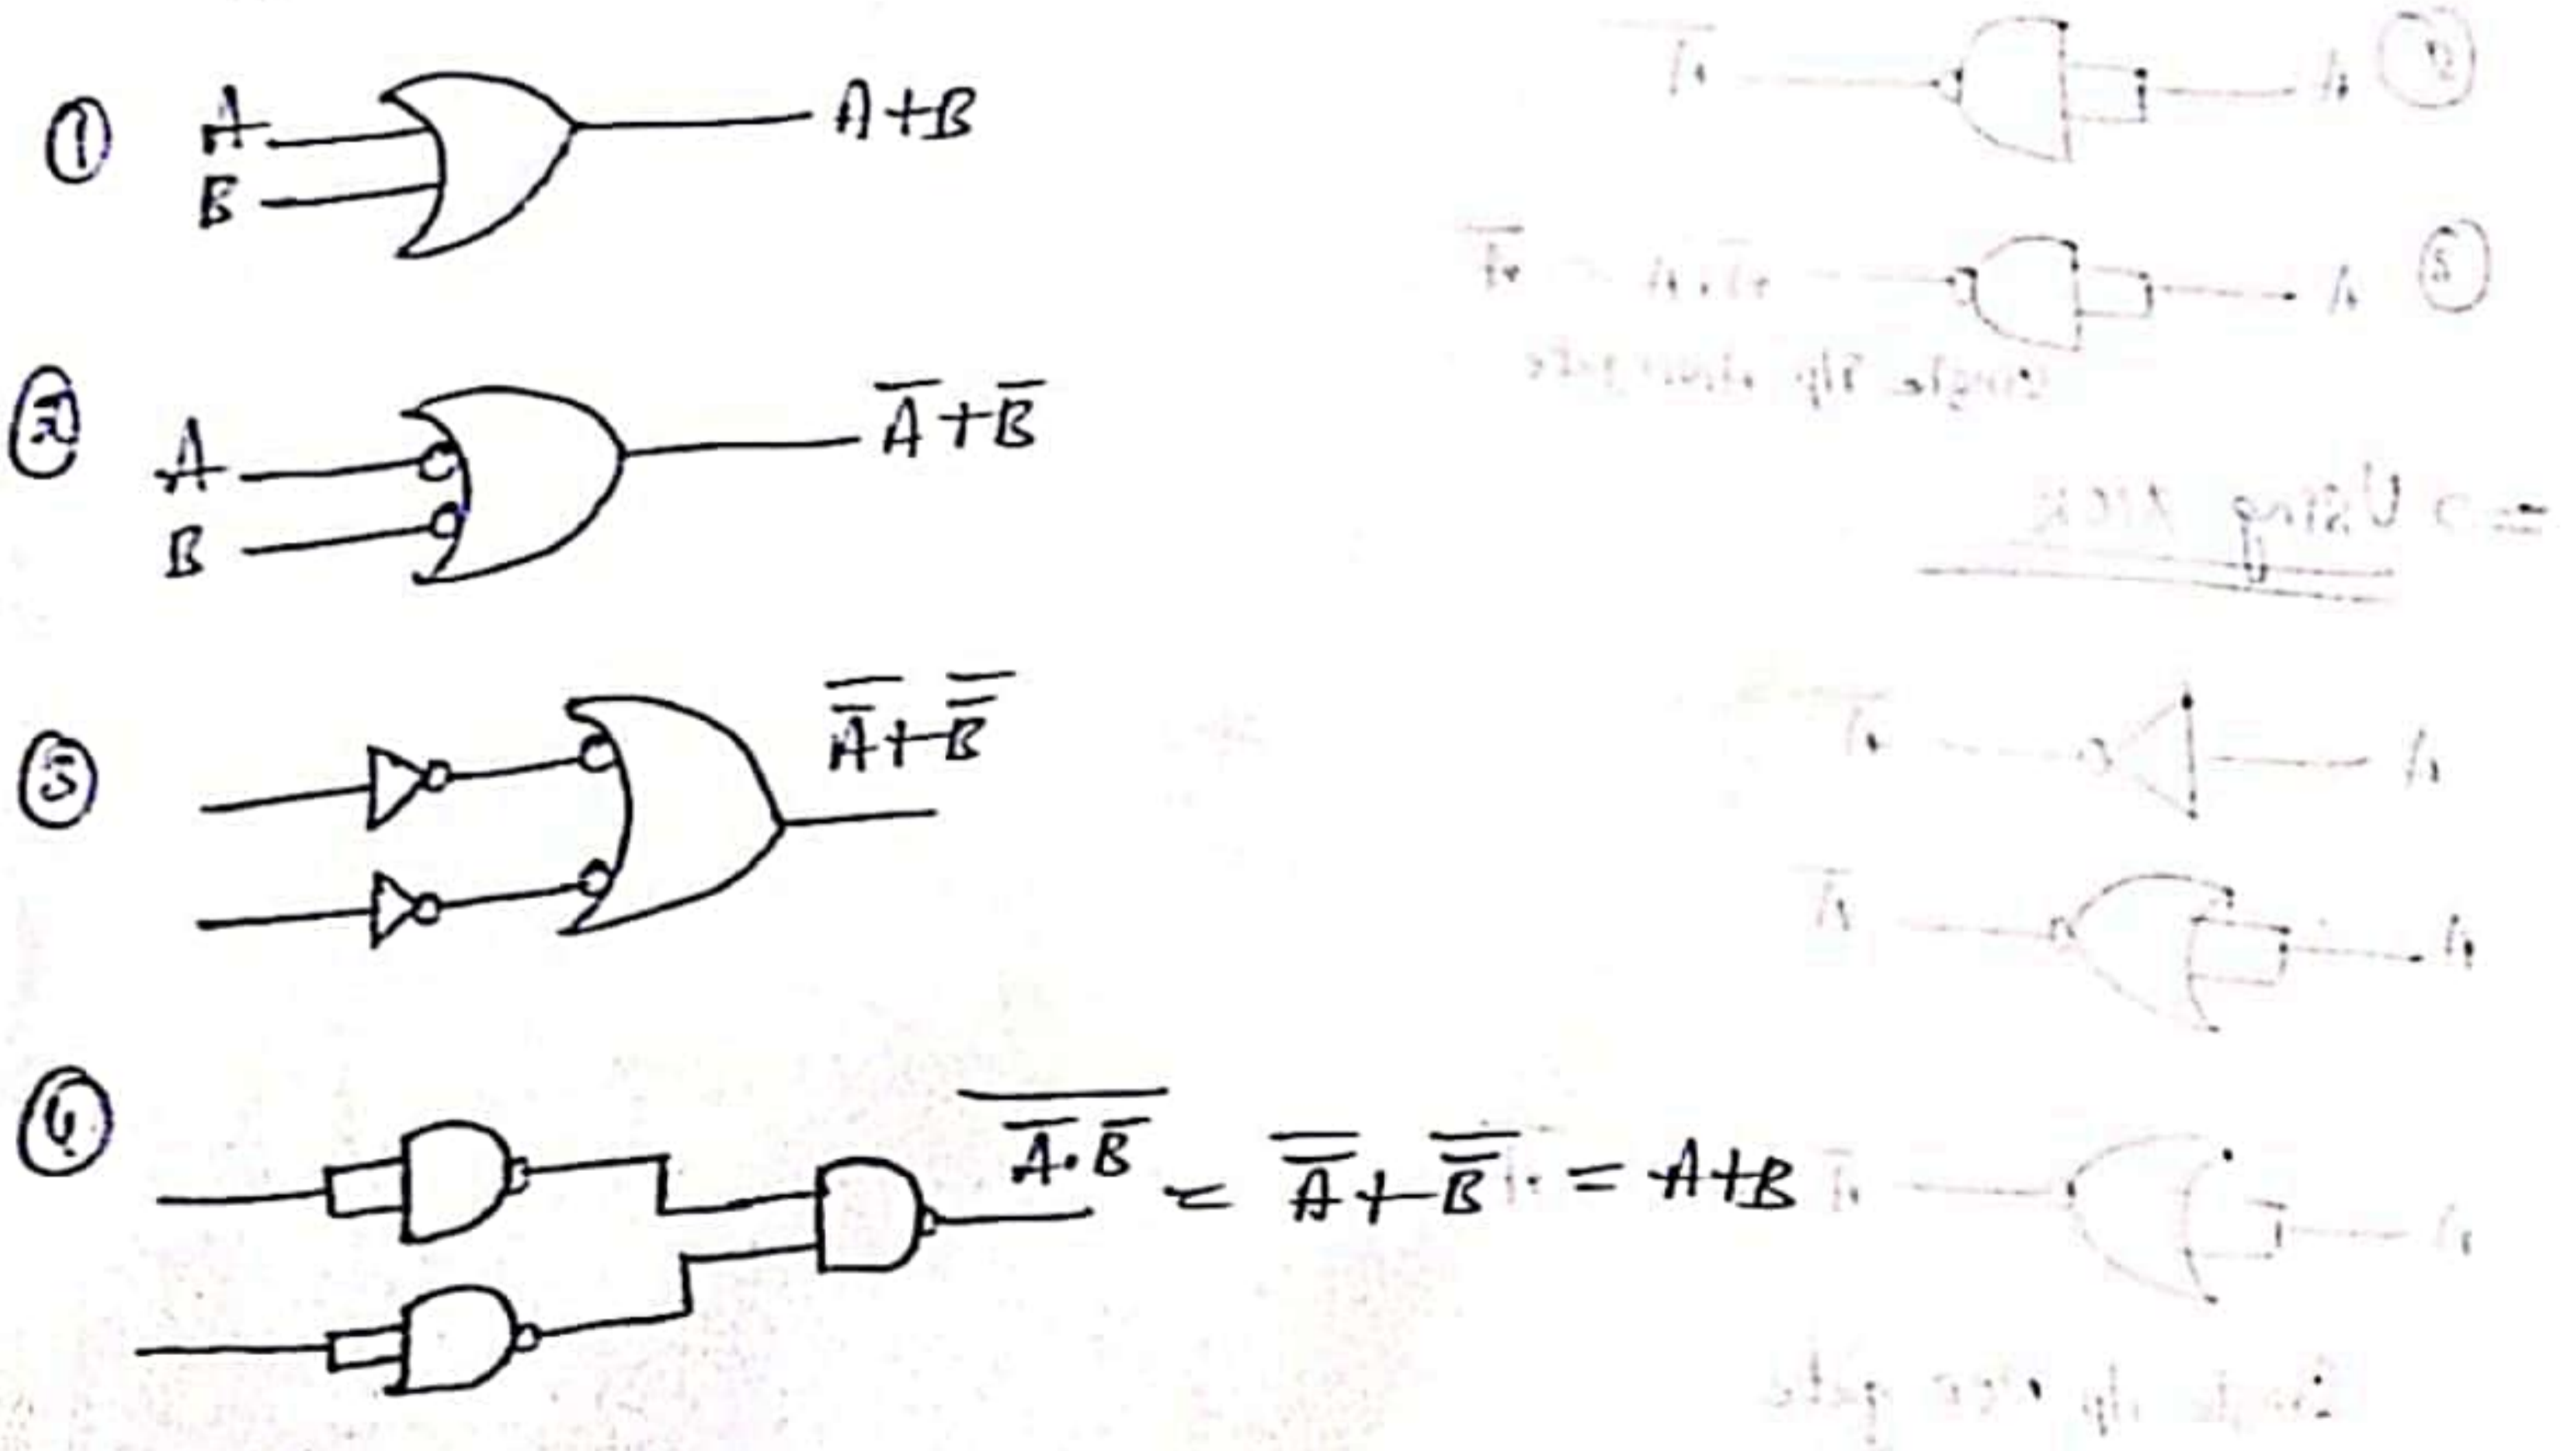 ① A
B
A+B
② A
B
A̅+B̅
③ A̿+B̿
④ \overline{A̅.B̅} = A̿+B̿ = A+B